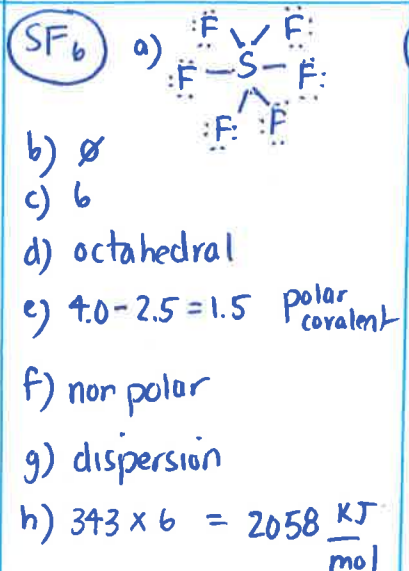 SF6
a) :F: F:
:F - S - F:
:F: :F
b) ø
c) 6
d) octahedral
e) 4.0 - 2.5 = 1.5 polar covalent
f) non polar
g) dispersion
h) 343 x 6 = 2058 KJ/mol